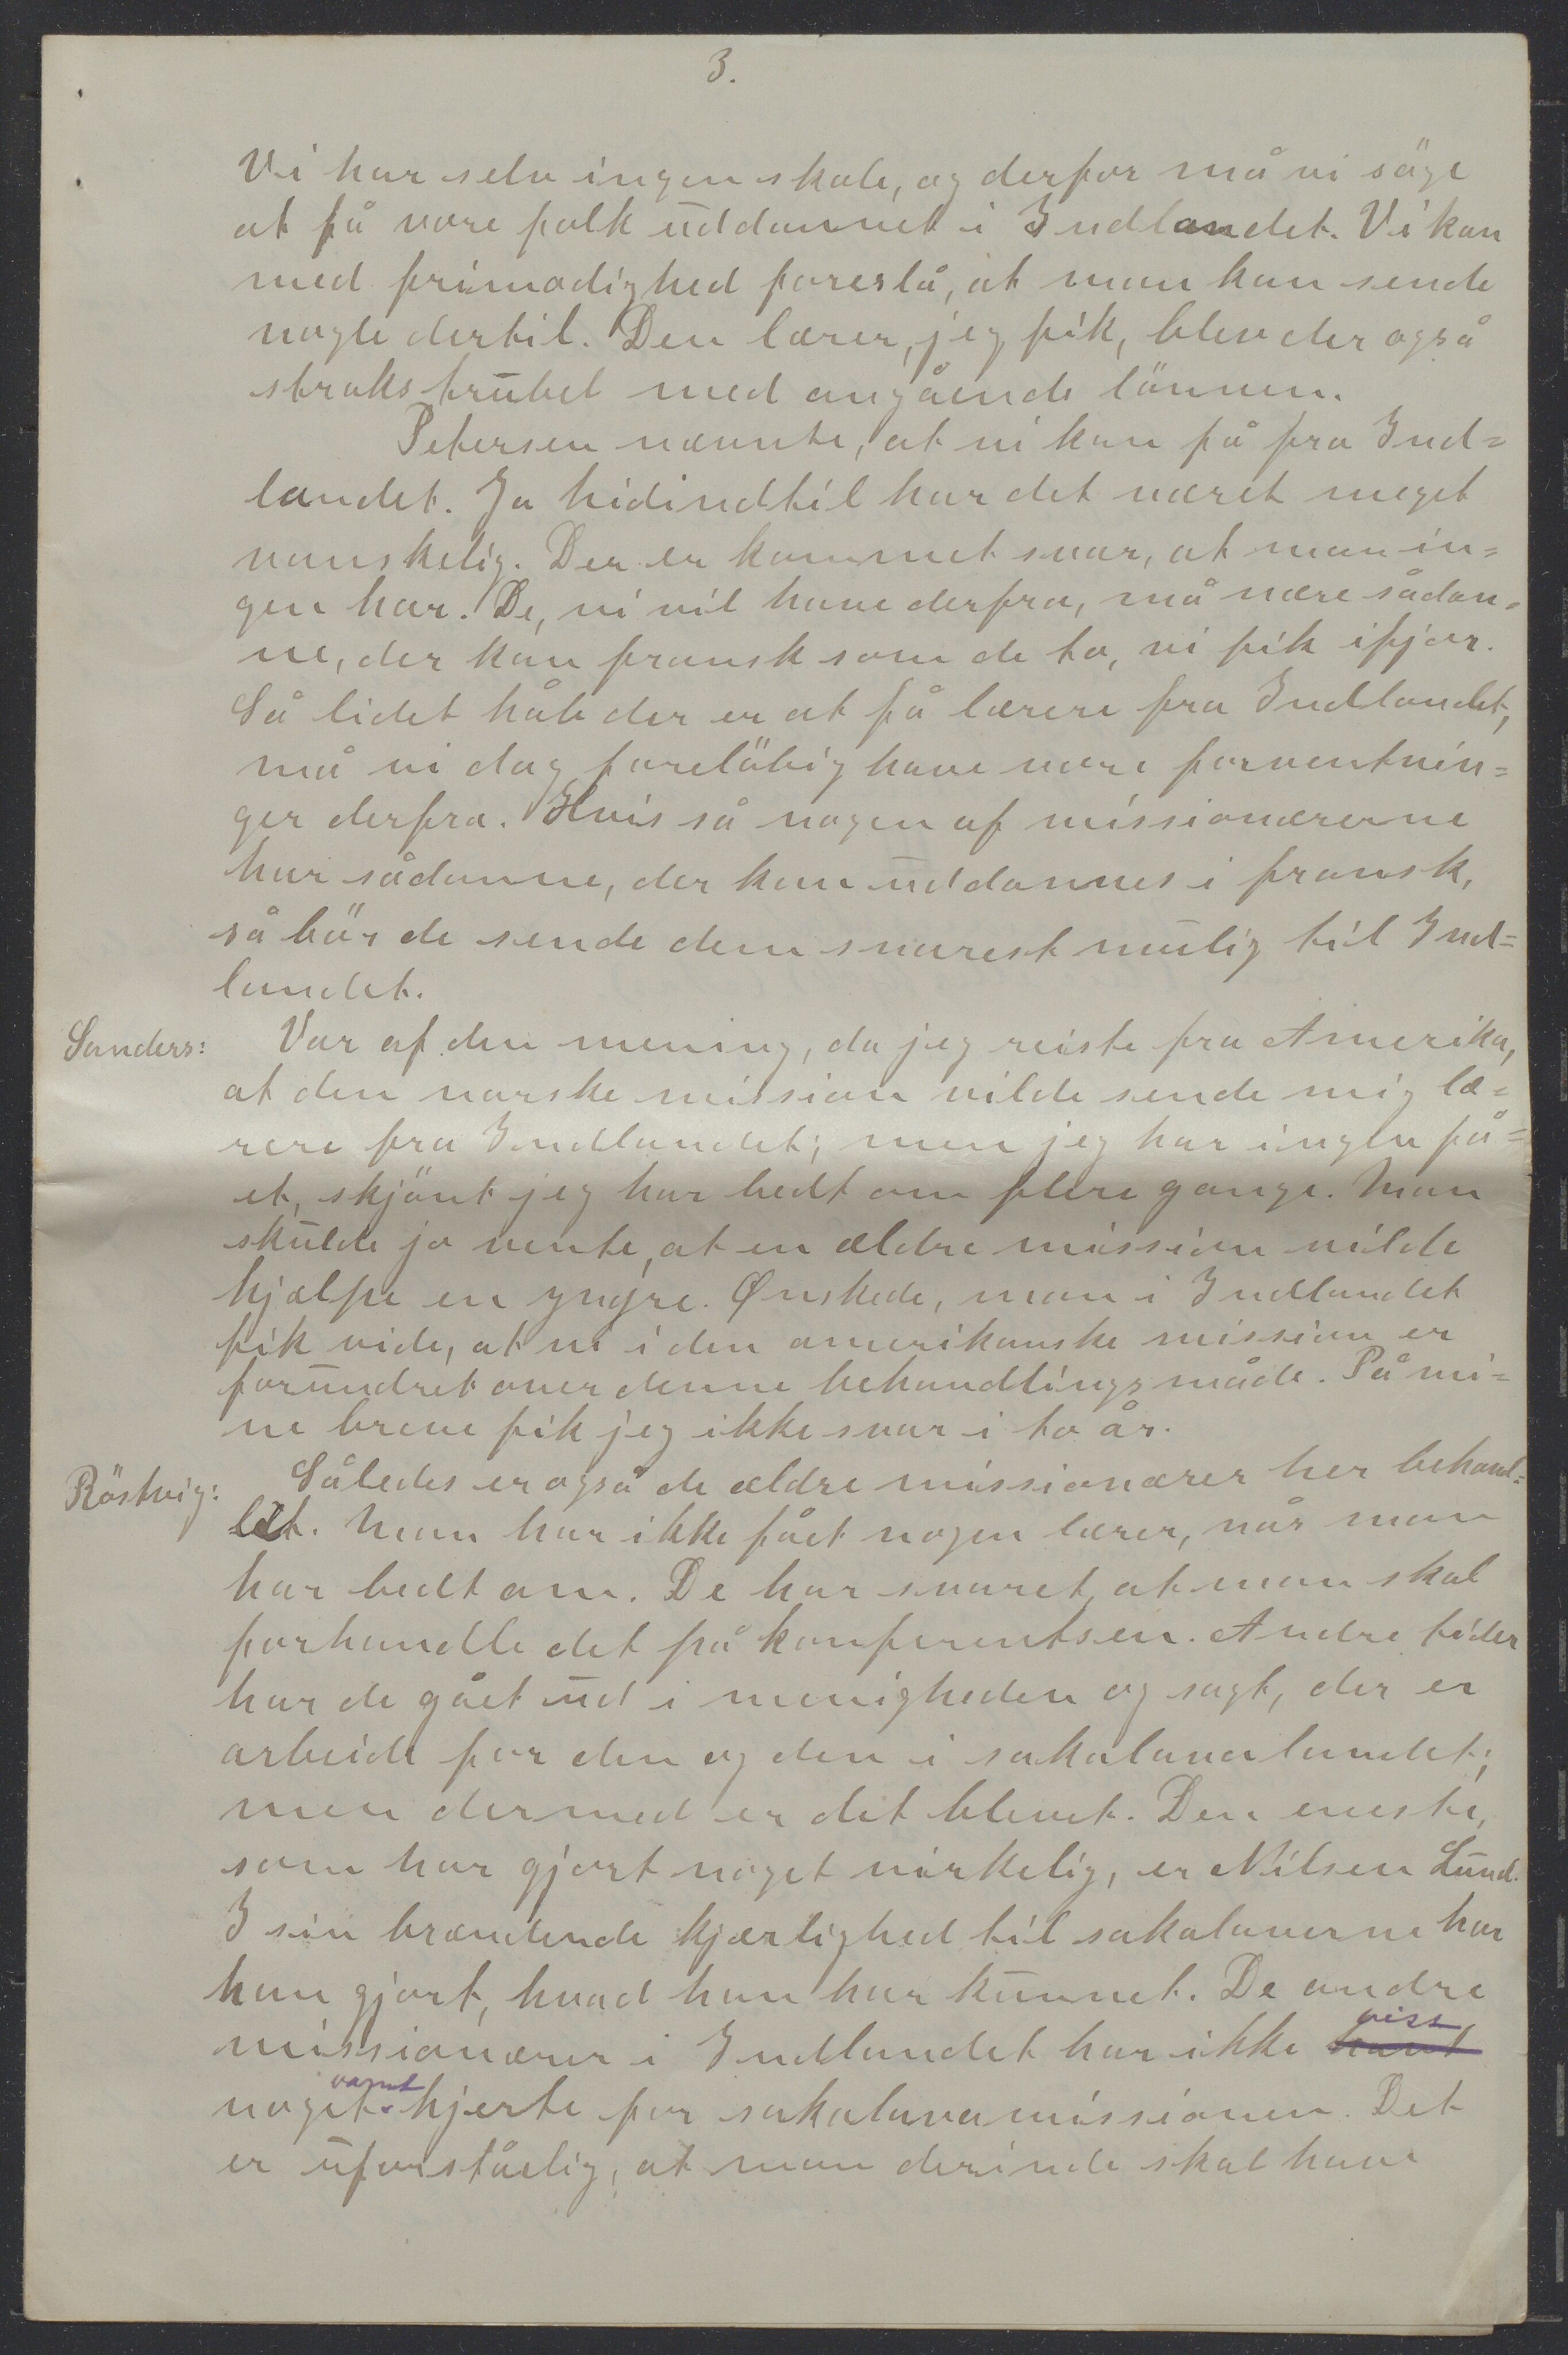 3.
Vi har selv ingen skole, og derfor må vi söge
at få vore folk uddannet i Indlandet. Vi kan
med frimodighed foreslå, at man kan sende
nogle dertil. Den lærer, jeg fik, blev der også
straks trubel med angående lönnen.
Petersen nævnte, at vi kan få fra Ind=
landet. Ja hidindtil har det været meget
vanskelig. Der er kommet svar, at man in=
gen har. De, vi vil have derfra, må være sådan=
ne, der kan fransk som de to, vi fik ifjor.
Så lidet håb der er at få lærere fra Indlandet,
må vi dog foreløbig have vore forventnin=
ger derfra. Hvis så nogen af missionærerne
har sådanne, der kan uddannes i fransk,
så bör de sende dem snarest mulig til Ind=
landet.
Sanders: Var af den mening, da jeg reiste fra Amerika,
at den norske mission vilde sende mig læ=
rere fra Indlandet; men jeg har ingen få=
et, skjönt jeg har bedt om flere gange. Man
skulde jo vente, at en ældre mission vilde
hjælpe en yngre. Ønskede, man i Indlandet
fik vide, at vi i den amerikanske mission er
forundret over denne behandlingsmåde. På mi=
ne breve fik jeg ikke svar i to år.
Röstvig: Således er også de ældre missionærer her behand=
let. Man har ikke fået nogen lærer, når man
har bedt om. De har svaret, at man skal
forhandle det på konferentsen. Andre tider
har de gået ud i menigheden og sagt, der er
arbeide for den og den i sakalavalandet;
men dermed er det blevet. Den eneste,
som har gjort noget virkelig, er Nilsen Lund.
I sin brændende kjærlighed til sakalaverne har
han gjort, hvad han har kunnet. De andre
missionærer i Indlandet har ikke havt vist
noget varmt hjerte for sakalavamissionen. Det
er uforståelig, at man derinde skal have